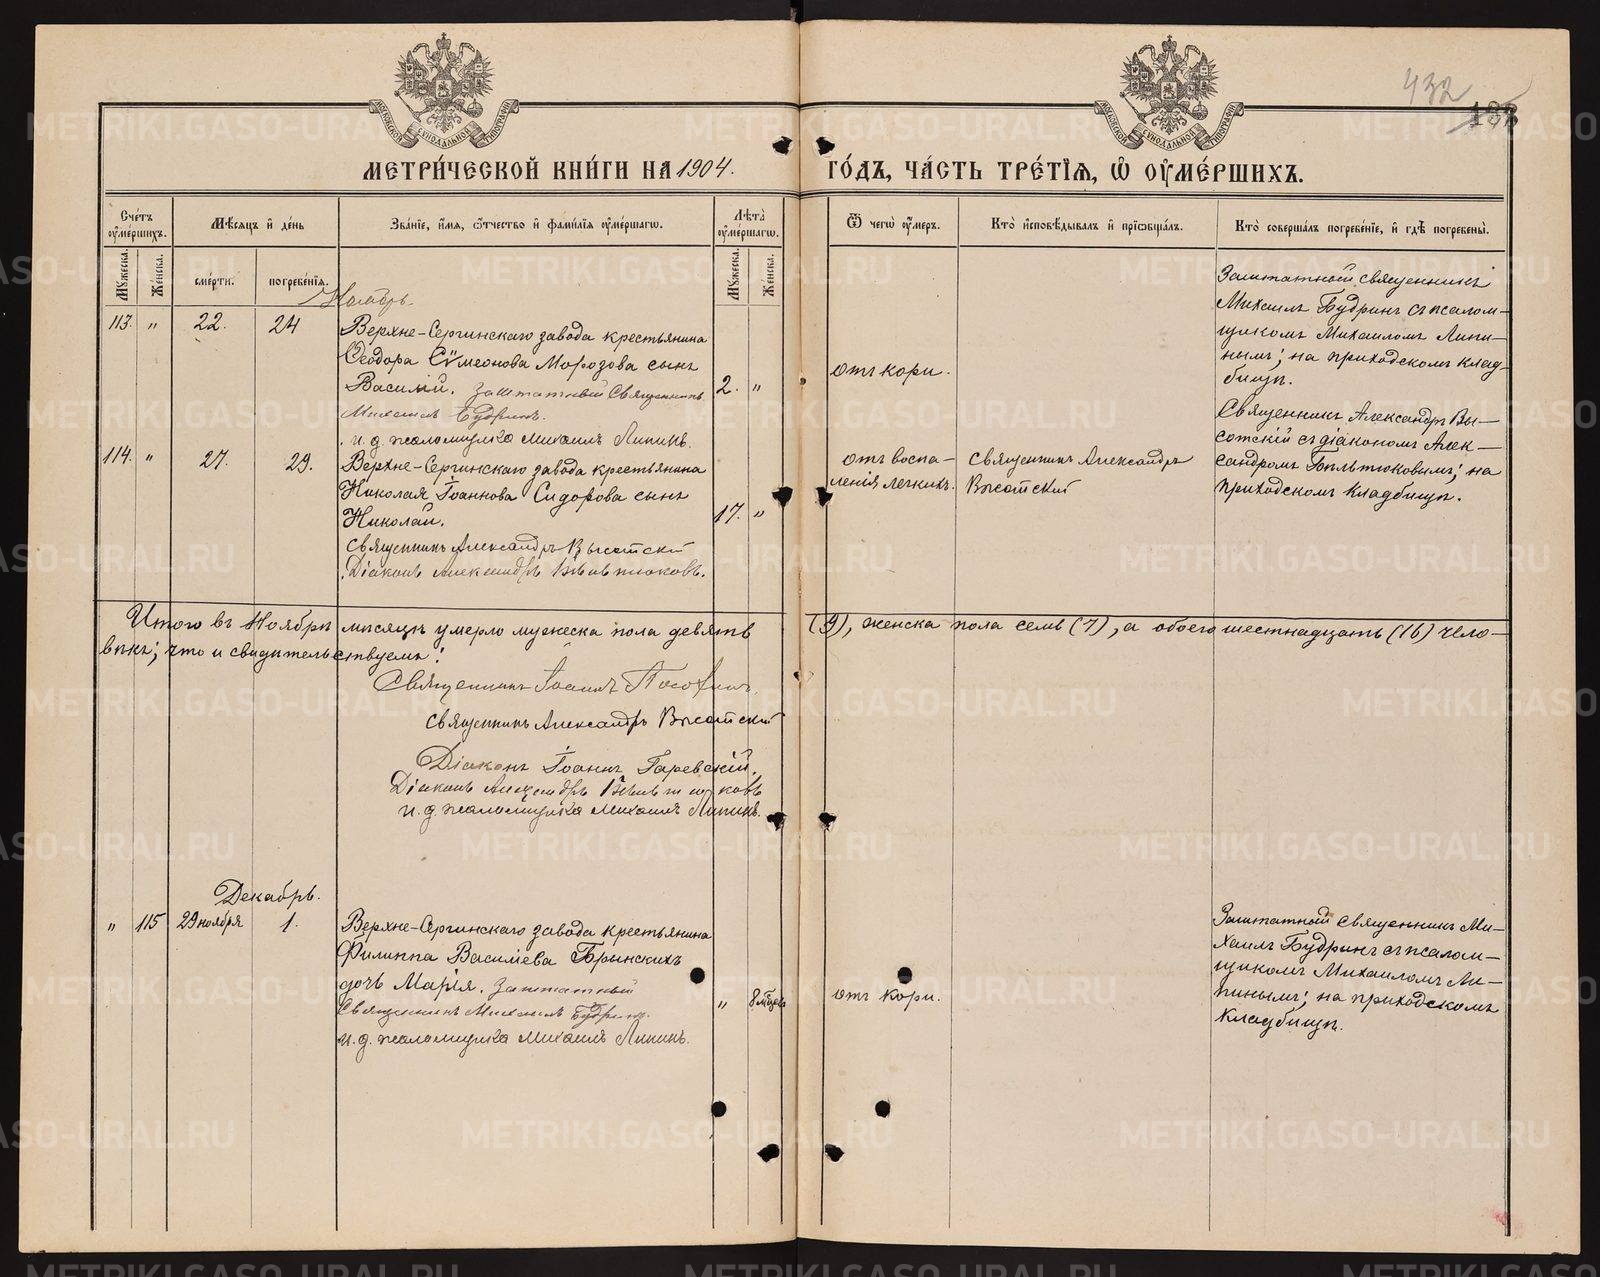 432
МОСКОВСКОЙ СѴНОДАЛЬНОЙ ТИПОГРАФІИ
МОСКОВСКОЙ СѴНОДАЛЬНОЙ ТИПОГРАФІИ
МЕТРИ́ЧЕСКОЙ КНИ́ГИ НА 1904. ГО́ДЪ, ЧА́СТЬ ТРЕ́ТІѦ, Ѡ ОУМЕ́РШИХЪ.
Сче́тъ оуме́ршихъ.
Мѣ́сяцъ и де́нь
Зва́ніе, и́мя, ѻ́тчество и фами́лія оуме́ршагѡ.
Лѣта̀ оуме́ршагѡ.
Ѿ чегѡ̀ оу́меръ.
Кто̀ исповѣ́дывалъ и пріѡбща́лъ.
Кто̀ соверша́лъ погребе́ніе, и гдѣ̀ погребены̀.
Му́жеска.
Же́нска.
сме́рти.
погребе́нія.
Му́жеска.
Же́нска.
Ноябрь.
113. " 22. 24
Верхне-Сергинскаго завода крестьянина
Ѳеодора Сѵмеонова Морозова сынъ
Василій. Заштатный Священникъ
Михаилъ Будринъ.
и. д. псаломщика Михаилъ Липинъ.
2. "
отъ кори.
Заштатный священникъ
Михаилъ Будринъ съ псалом-
щикомъ Михаиломъ Липи-
нымъ; на приходскомъ клад-
бищѣ.
114. " 27. 29.
Верхне-Сергинскаго завода крестьянина
Николая Іоаннова Сидорова сынъ
Николай.
Священникъ Александръ Высотскій
Діаконъ Александръ
17. "
отъ воспа-
ленія легкихъ.
Священникъ Александръ
Высотскій
Священникъ Александръ Вы-
сотскій съ діакономъ Алек-
сандромъ на
приходскомъ кладбищѣ.
Итого въ Ноябрѣ мѣсяцѣ умерло мужеска пола девять (9), женска пола семь (7), а обоего шестнадцать (16) чело-
вѣкъ; что и свидѣтельствуемъ:
Священникъ Іоаннъ
Священникъ Александръ Высотскій
Діаконъ Іоаннъ Гаревскій.
Діаконъ Александръ
и. д. псаломщика Михаилъ Липинъ.
Декабрь.
" 115 29 ноября 1.
Верхне-Сергинскаго завода крестьянина
Филиппа Василіева Брынскихъ
дочь Марія. Заштатный
Священникъ Михаилъ Будринъ.
и. д. псаломщика Михаилъ Липинъ.
" 8 мѣсяц.
отъ кори.
Заштатный священникъ Ми-
хаилъ Будринъ съ псалом-
щикомъ Михаиломъ Ли-
пинымъ; на приходскомъ
кладбищѣ.
METRIKI.GASO-URAL.RU